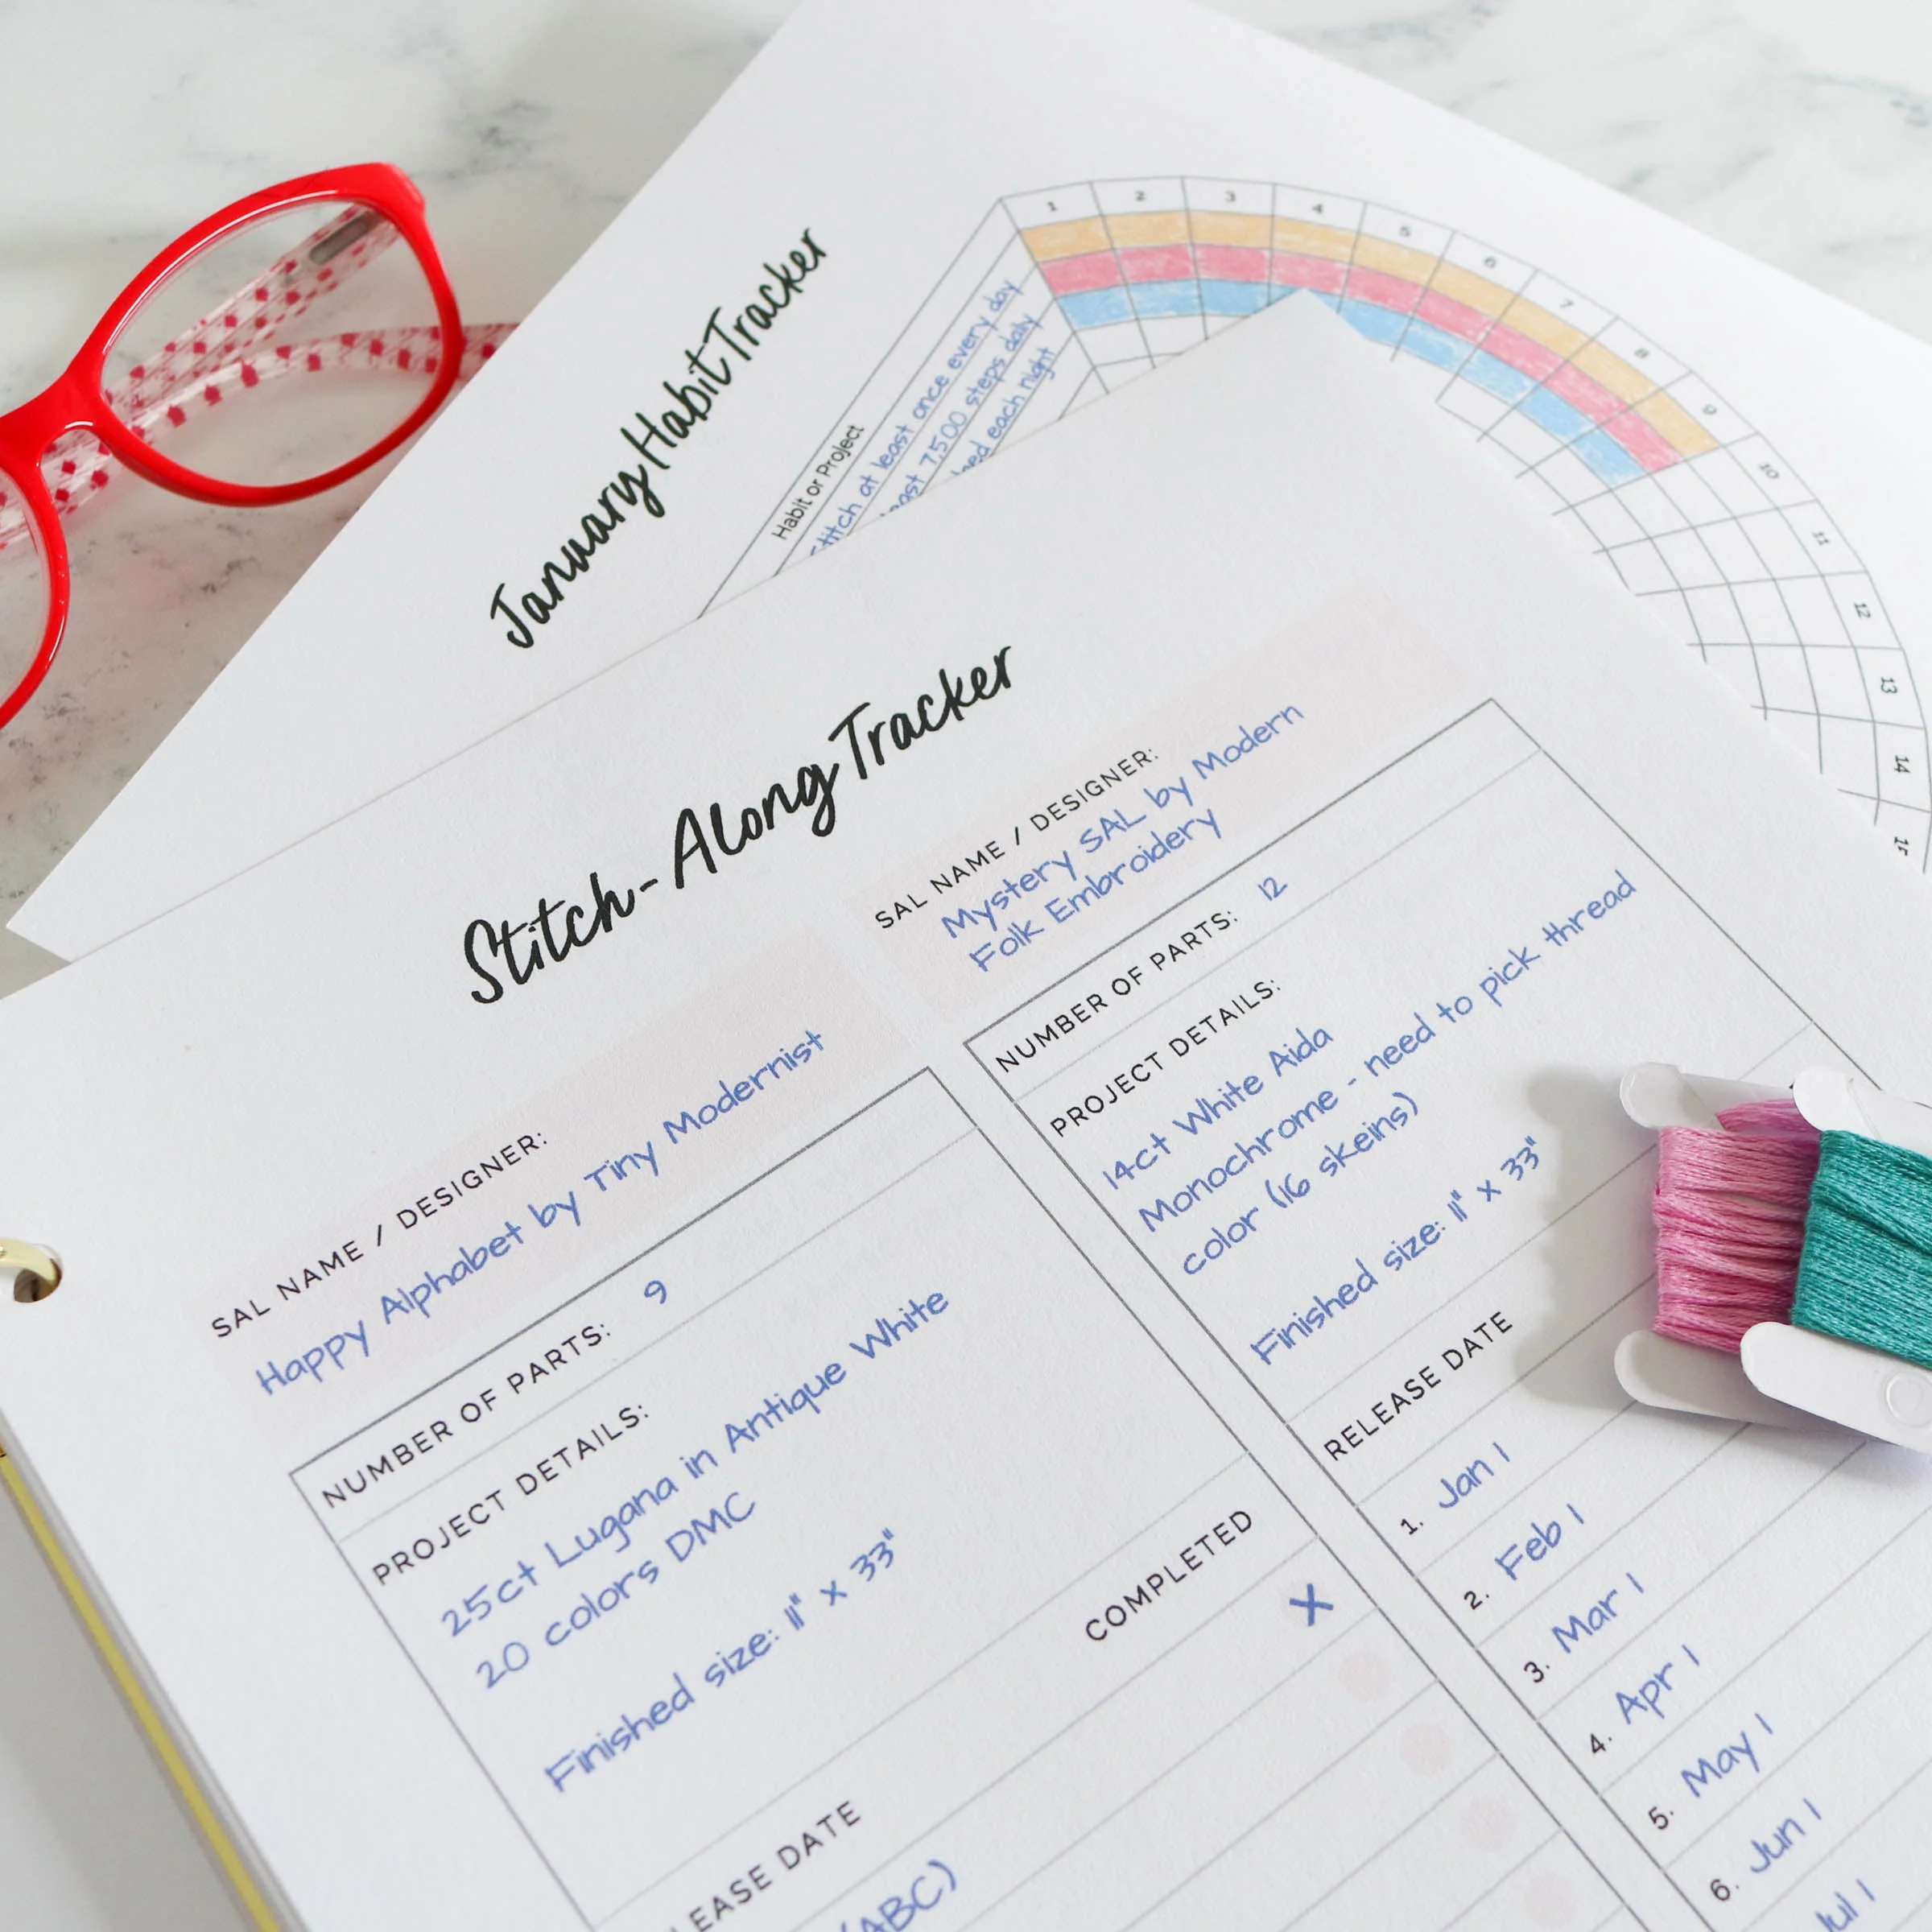 January Habit Tracker
Habit or Project
Stitch at least once every day
7,500 steps daily
each night
1 2 3 4 5 6 7 8 9 10 11 12 13 14
Stitch-Along Tracker
SAL NAME / DESIGNER:
Happy Alphabet by Tiny Modernist
NUMBER OF PARTS: 9
PROJECT DETAILS:
25ct Lugana in Antique White
20 colors DMC
Finished size: 11" x 33"
COMPLETED
X
(ABC)
SAL NAME / DESIGNER:
Mystery SAL by Modern
Folk Embroidery
NUMBER OF PARTS: 12
PROJECT DETAILS:
14ct White Aida
Monochrome - need to pick thread
color (16 skeins)
Finished size: 11" x 33"
RELEASE DATE
1. Jan 1
2. Feb 1
3. Mar 1
4. Apr 1
5. May 1
6. Jun 1
Jul 1